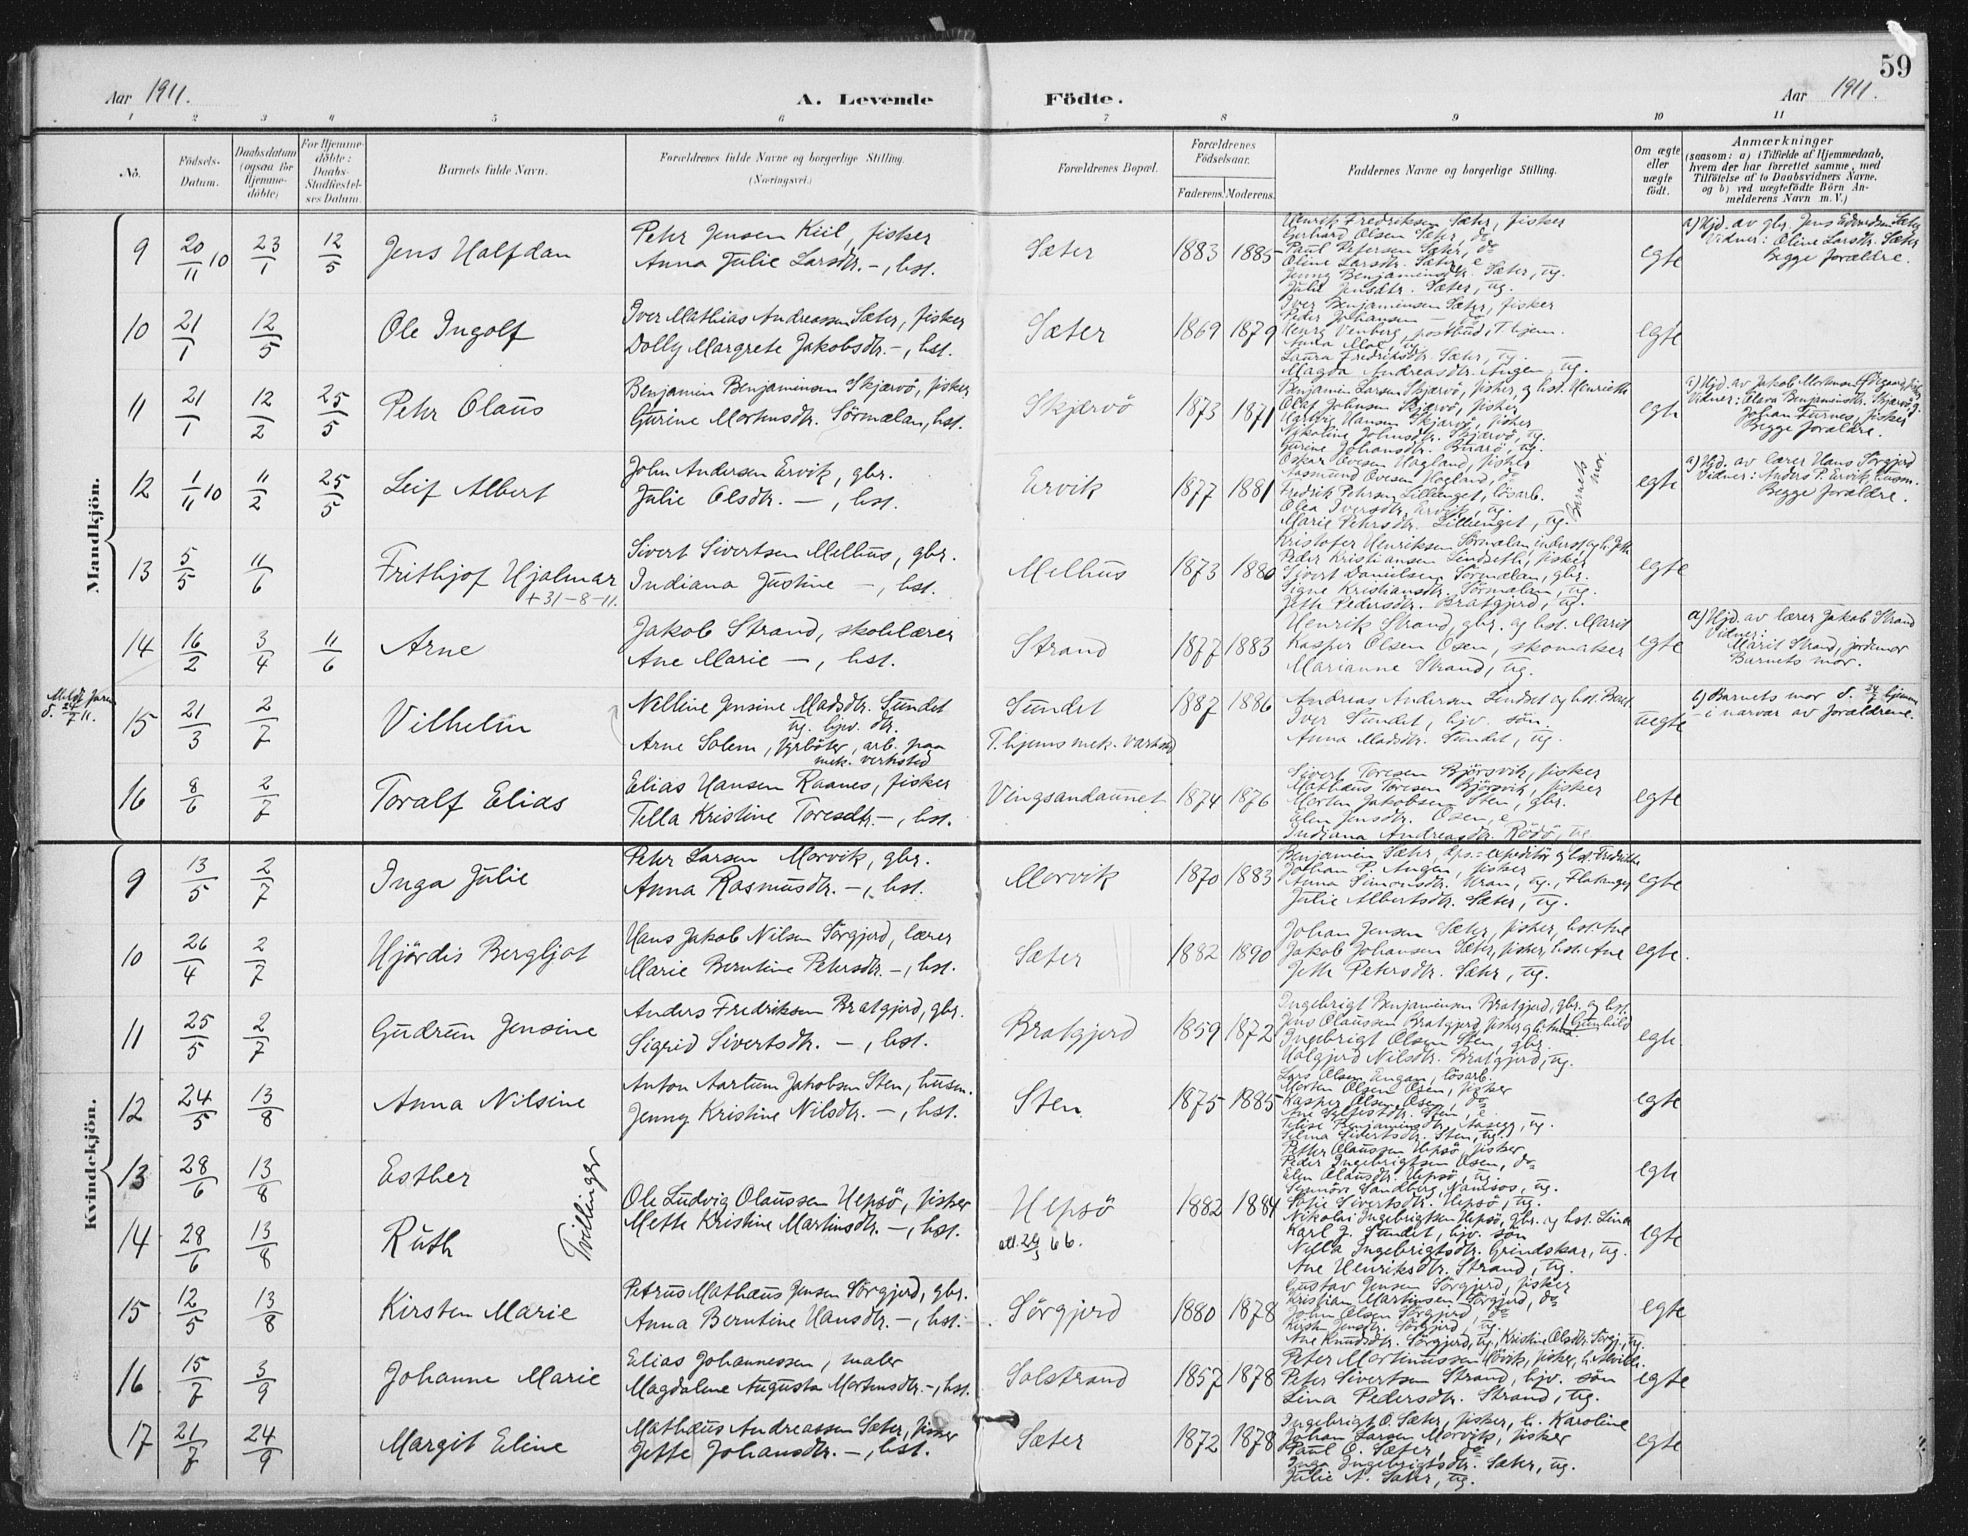 59
Aar 1911.
A. Levende Födte.
Aar 1911.
1 2 3 4 5 6 7 8 9 10 11
No.
Födsels-Datum.
Daabsdatum (ogsaa for Hjemmedöbte)
For Hjemmedöbte: Daabs-Stadfæstelses Datum.
Barnets fulde Navn.
Forældrenes fulde Navne og borgerlige Stilling.
(Næringsvei.)
Forældrenes Bopæl.
Forældrenes Födselsaar.
Faderens. Moderens.
Faddernes Navne og borgerlige Stilling.
Om ægte eller uægte födt.
Anmærkninger
(saasom: a) i Tilfælde af Hjemmedaab, hvem der har forrettet samme, med Tilföielse af to Daabsvidners Navne, og b) ved uægtefödte Börn Anmelderens Navn m. V.)
Mandkjön.
9 20/11 10 23/1 12/5 Jens Halfdan
Peter Jensen Kiil, fisker
Anna Julie Larsdtr. –, hst.
Sæter 1883 1885
Henrik Fredriksen Sæter, fisker
Gerhard Olsen Sæter, do
Paul Petersen Sæter, do
Oline Larsdtr. Sæter, e
Jenny Benjaminsdtr. Sæter, ug.
Julie Jensdtr. Sæter, ug.
egte
a) Hjd. av gbr. Jens Edvardsen Sæter
Vidner: Oline Larsdtr. Sæter
Begge forældre.
10 21/1 12/5 Ole Ingolf
Iver Mathias Andreassen Sæter, fisker
Dolly Margrete Jakobsdtr. –, hst.
Sæter 1869 1879
Iver Benjaminsen Sæter, fisker
Peder Johansen –
Henry Venberg, postbud, T.hjem.
Anna Moe, ug.
Laura Fredriksdtr. Sæter, ug.
Magda Andreasdtr. Angen, ug.
egte
11 21/1 12/2 25/5 Peter Olaus
Benjamin Benjaminsen Skjærvö, fisker
Gurine Mortensdtr. Sörmælan, hst.
Skjærvö 1873 1871
Benjamin Larsen Skjærvö, fisker, og hst. Henriette
Olaf Johnsen Skjærvö, fisker
Hartvig Hansen Skjærvö, fisker
Nikoline Johnsdtr. Skjærvö, ug.
Gurine Johansdtr. Buarö, ug.
egte
a) Hjd. av Jakob Mortensen Ödegaard, fisker
Vidner: Olava Benjaminsdtr. Skjærvö, g.
Johan Furnes, fisker
Begge forældre.
12 1/11 10 11/2 25/5 Leif Albert
John Andersen Ervik, gbr.
Julie Olsdtr. –, hst.
Ervik 1877 1881
Oskar Ovesen Hagland, fisker
Aasmund Ovesen Hagland, do
Fredrik Petersen Lillienget, lösarb.
Olea Iversdtr. Ervik, ug.
Marie Petersdtr. Lillienget, ug.
Barnets mor.
egte
a) Hjd. av lærer Hans Sörgjerd
Vidner: Anders P. Ervik, husm.
Begge forældre.
13 5/5 11/6 Frithjof Hjalmar
+ 31-8-11.
Sivert Sivertsen Melhus, gbr.
Indiana Justine –, hst.
Melhus 1873 1880
Kristofer Henriksen Sörmælan, inderst og h. Jette
Peder Kristiansen Lindseth, fisker
Sivert Danielsen Sörmælan, gbr.
Signe Kristiansdtr. Sörmælan, ug.
Jette Pedersdtr. Bratgjerd, ug.
egte
14 16/2 3/4 11/6 Arne
Jakob Strand, skolelærer
Ane Marie –, hst.
Strand 1877 1883
Henrik Strand, gbr. og hst. Marit
Kasper Olsen Osen, skomaker
Marianne Strand, ug.
egte
a) Hjd. av lærer Jakob Strand
Vidner:
Marit Strand, jordemor
Barnets mor.
15 21/3 2/7 Vilhelm
Nelline Jensine Madsdtr. Sundet
ug. hjv. dtr.
Arne Solem, fyrböter, arb. paa
mek. verksted
Sundet 1887 1886
T.hjems mek. værksted
Andreas Andersen Lindset og hst. Berit
Iver Sundet, hjv. sön
Anna Madsdtr. Sundet, ug.
uegte
b) Barnets mor d. 24/7 hjemme
i nærvær av forældrene.
16 8/6 2/7 Toralf Elias
Elias Hansen Raanes, fisker
Tilla Kristine Toresdtr. –, hst.
Vingsandaunet 1874 1876
Sivert Toresen Björsvik, fisker
Mathæus Toresen Björsvik, fisker
Morten Jakobsen Sten, gbr.
Elen Jensdtr. Osen, e
Indiana Andreasdtr. Rödö, ug.
egte
Kvindekjön.
9 13/5 2/7 Inga Julie
Peter Larsen Morvik, gbr.
Anna Rasmusdtr. –, hst.
Morvik 1870 1883
Benjamin Sæter, dps.-expeditör og hst. Fredrikke
Johan P. Angen, fisker
Anna Simonsdtr. Uran, ug., Flatanger
Julie Albertsdtr. Sæter, ug.
egte
10 26/4 2/7 Hjördis Bergljot
Hans Jakob Nilsen Sörgjerd, lærer
Marie Berntine Petersdtr. –, hst.
Sæter 1882 1890
Johan Jensen Sæter, fisker, hst. Ane
Jakob Johansen Sæter, fisker, hst. Ane
Jette Petersdtr. Sæter, ug.
egte.
11 25/5 2/7 Gudrun Jensine
Anders Fredriksen Bratgjerd, gbr.
Sigrid Sivertsdtr. –, hst.
Bratgjerd 1859 1872
Ingebrigt Benjaminsen Bratgjerd, gbr. og hst.
Jens Olaussen Bratgjerd, fisker, gbr. Gunhild
Ingebrigt Olsen Sten, gbr.
Halgjerd Nilsdtr. Bratgjerd, ug.
egte
12 24/5 13/8 Anna Nilsine
Anton Aartum Jakobsen Sten, husm.
Jenny Kristine Nilsdtr. –, hst.
Sten 1875 1885
Lars Olsen Engan, lösarb.
Morten Olsen Osen, fisker
Kasper Olsen Osen, do
Ane Sten, e.
Felise Benjaminsdtr. Aasegg, ug.
Selma Sivertsdtr. Sten, ug.
egte
13 28/6 13/8 Esther
Tvillinger
Ole Ludvig Olaussen Hepsö, fisker
Mette Kristine Martinsdtr. –, hst.
Hepsö 1882 1884
Petter Olaussen Hepsö, fisker
Peder Ingebrigtsen Osen, do
Elen Olausdtr. Hepsö, ug.
Sandberg, Namsos, ug.
Sofie Sivertsdtr. Hepsö, ug.
egte
14 28/6 13/8 Ruth
Nikolai Ingebrigtsen Hepsö, gbr. og hst. Lina
Karl J. Sundet, hjv. sön
Nilla Ingebrigtsdtr. Grindskar, ug.
Ane Henriksdtr. Strand, ug.
egte
15 12/5 13/8 Kirsten Marie
Petrus Mathæus Jensen Sörgjerd, gbr.
Anna Berntine Hansdtr. –, hst.
Sörgjerd 1880 1878
Gustav Jensen Sörgjerd, fisker
Kristian Martinsen Sörgjerd, do
John Olsen Sörgjerd, do
Kirsten Jensdtr. Sörgjerd, ug.
Ane Knudsdtr. Sörgjerd, ug., Kristine Olsdtr. Sörgj., ug.
egte
16 15/7 3/9 Johanne Marie
Elias Johannessen, maler
Magdalene Augusta Mortensdtr. –, hst.
Solstrand 1857 1878
Peter Martinussen Hövik, fisker,
Peter Sivertsen Strand, hjv. sön
Lina Pedersdtr. Strand, ug.
egte
17 21/7 24/9 Margit Eline
Mathæus Andreassen Sæter, fisker
Jette Johansdtr. –, hst.
Sæter 1872 1878
Ingebrigt O. Sæter, fisker, h. Karoline
Johan Larsen Morvik, fisker
Paul O. Sæter, do
Inga Ingebrigtsdtr. Sæter, ug.
Julie A. Sæter, ug.
egte